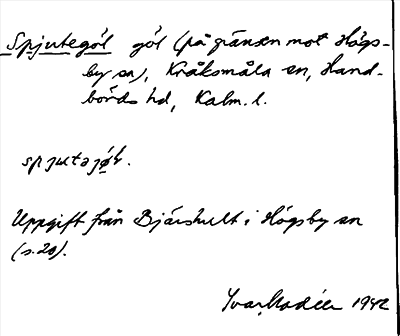 Spjutegöl göl (på gränsen mot Högs-
by sn), Kråksmåla sn, Hand-
börds hd, Kalm. l.
spjutəjö̀l.
Uppgift från Bjärshult i Högsby sn
(s. 20).
Yvar Modéer 1942